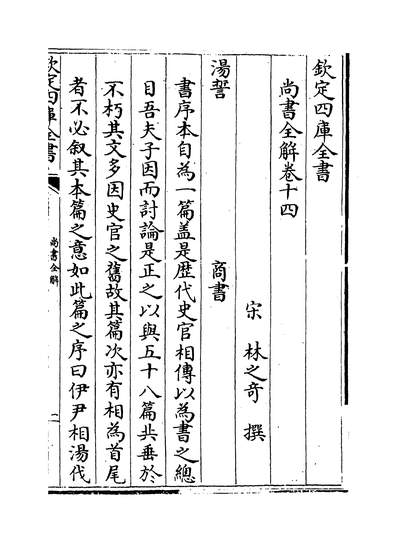 欽定四庫全書
尚書全解卷十四
宋 林之奇 撰
湯誓 商書
書序本自為一篇盖是歴代史官相傳以為書之總
目吾夫子因而討論是正之以與五十八篇共垂於
不朽其文多因史官之舊故其篇次亦有相為首尾
者不必叙其本篇之意如此篇之序曰伊尹相湯伐
欽定四庫全書
尚書全解